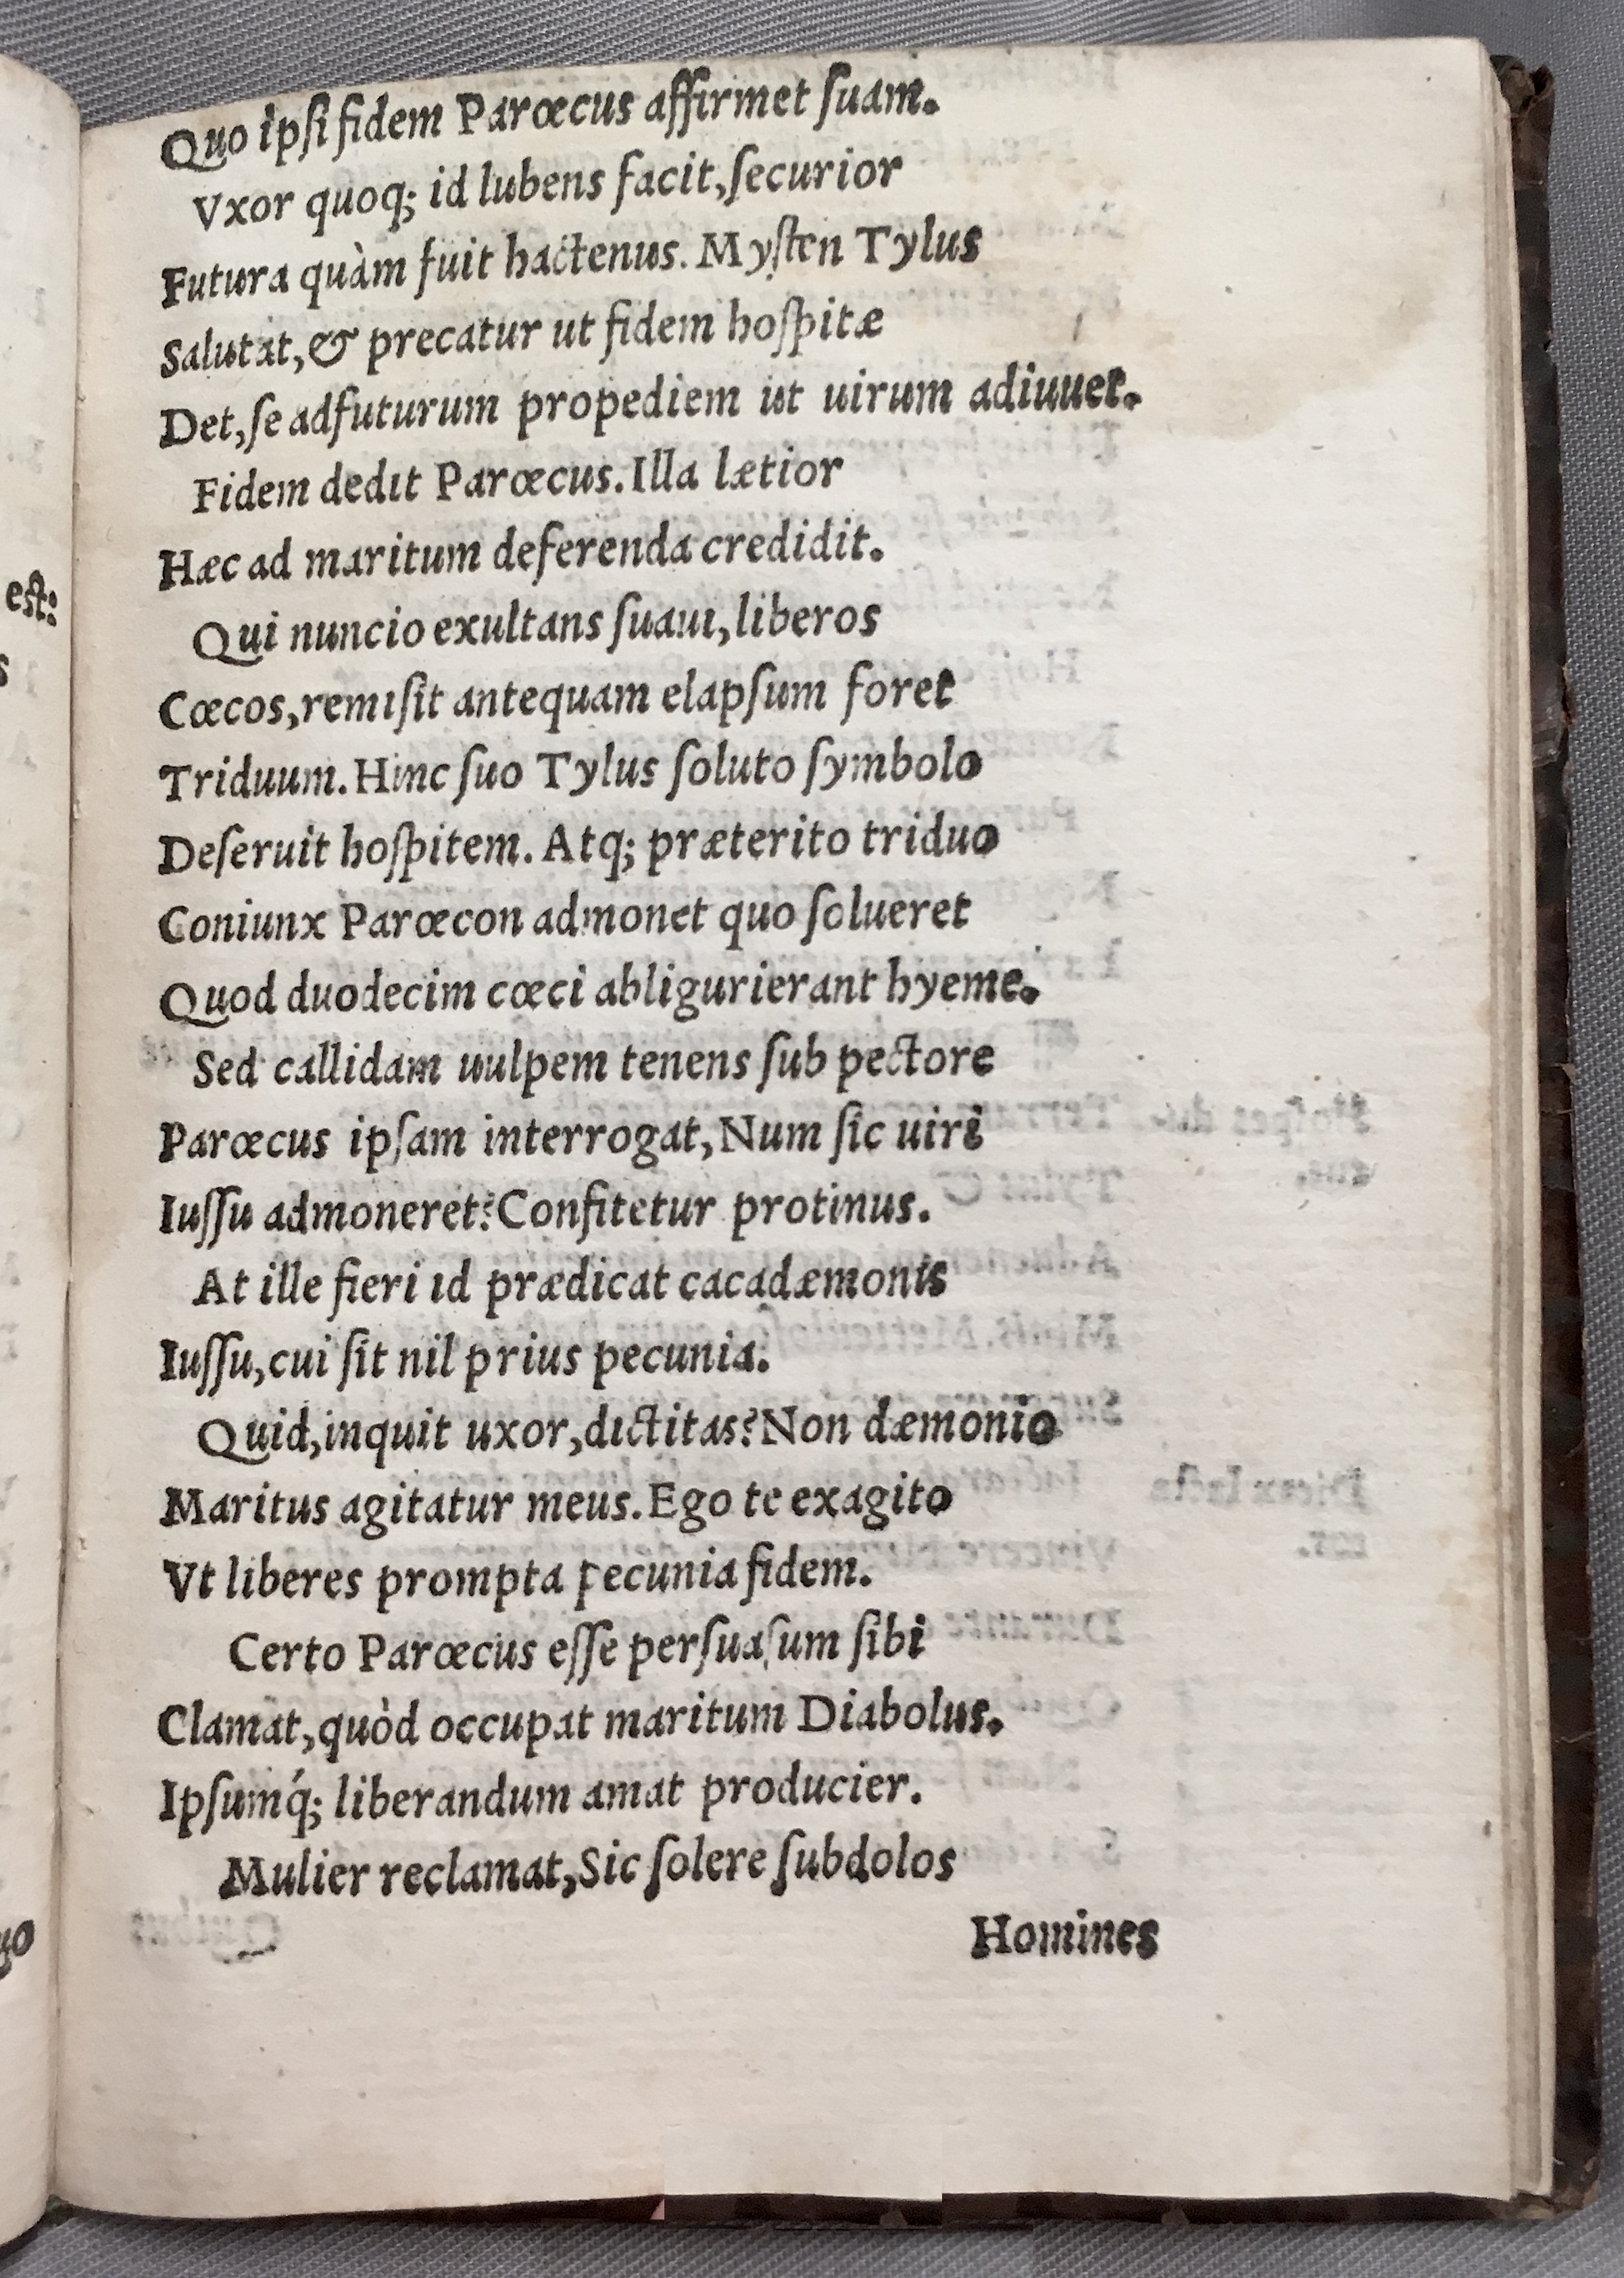 Quo ipſi fidem Parœcus affirmet ſuam.
Vxor quoq; id lubens facit, ſecurior
Futura quàm fuit hactenus. Myſten Tylus
Salutat, & precatur ut fidem hoſpitæ
Det, ſe adfuturum propediem ut uirum adiuuet.
Fidem dedit Parœcus. Illa lætior
Hæc ad maritum deferenda credidit.
Qui nuncio exultans ſuaui, liberos
Cœcos, remiſit antequam elapſum foret
Triduum. Hinc ſuo Tylus ſoluto ſymbolo
Deſeruit hoſpitem. Atq; præterito triduo
Coniunx Parœcon admonet quo ſolueret
Quod duodecim cœci abligurierant hyeme.
Sed callidam uulpem tenens ſub pectore
Parœcus ipſam interrogat, Num ſic uiri
Iuſſu admoneret? Confitetur protinus.
At ille fieri id prædicat cacadæmonis
Iuſſu, cui ſit nil prius pecunia.
Quid, inquit uxor, dictitas? Non dæmonio
Maritus agitatur meus. Ego te exagito
Vt liberes prompta pecunia fidem.
Certo Parœcus eſſe perſuaſum ſibi
Clamat, quòd occupat maritum Diabolus.
Ipſumq́; liberandum amat producier.
Mulier reclamat, Sic ſolere ſubdolos
Homines
est: